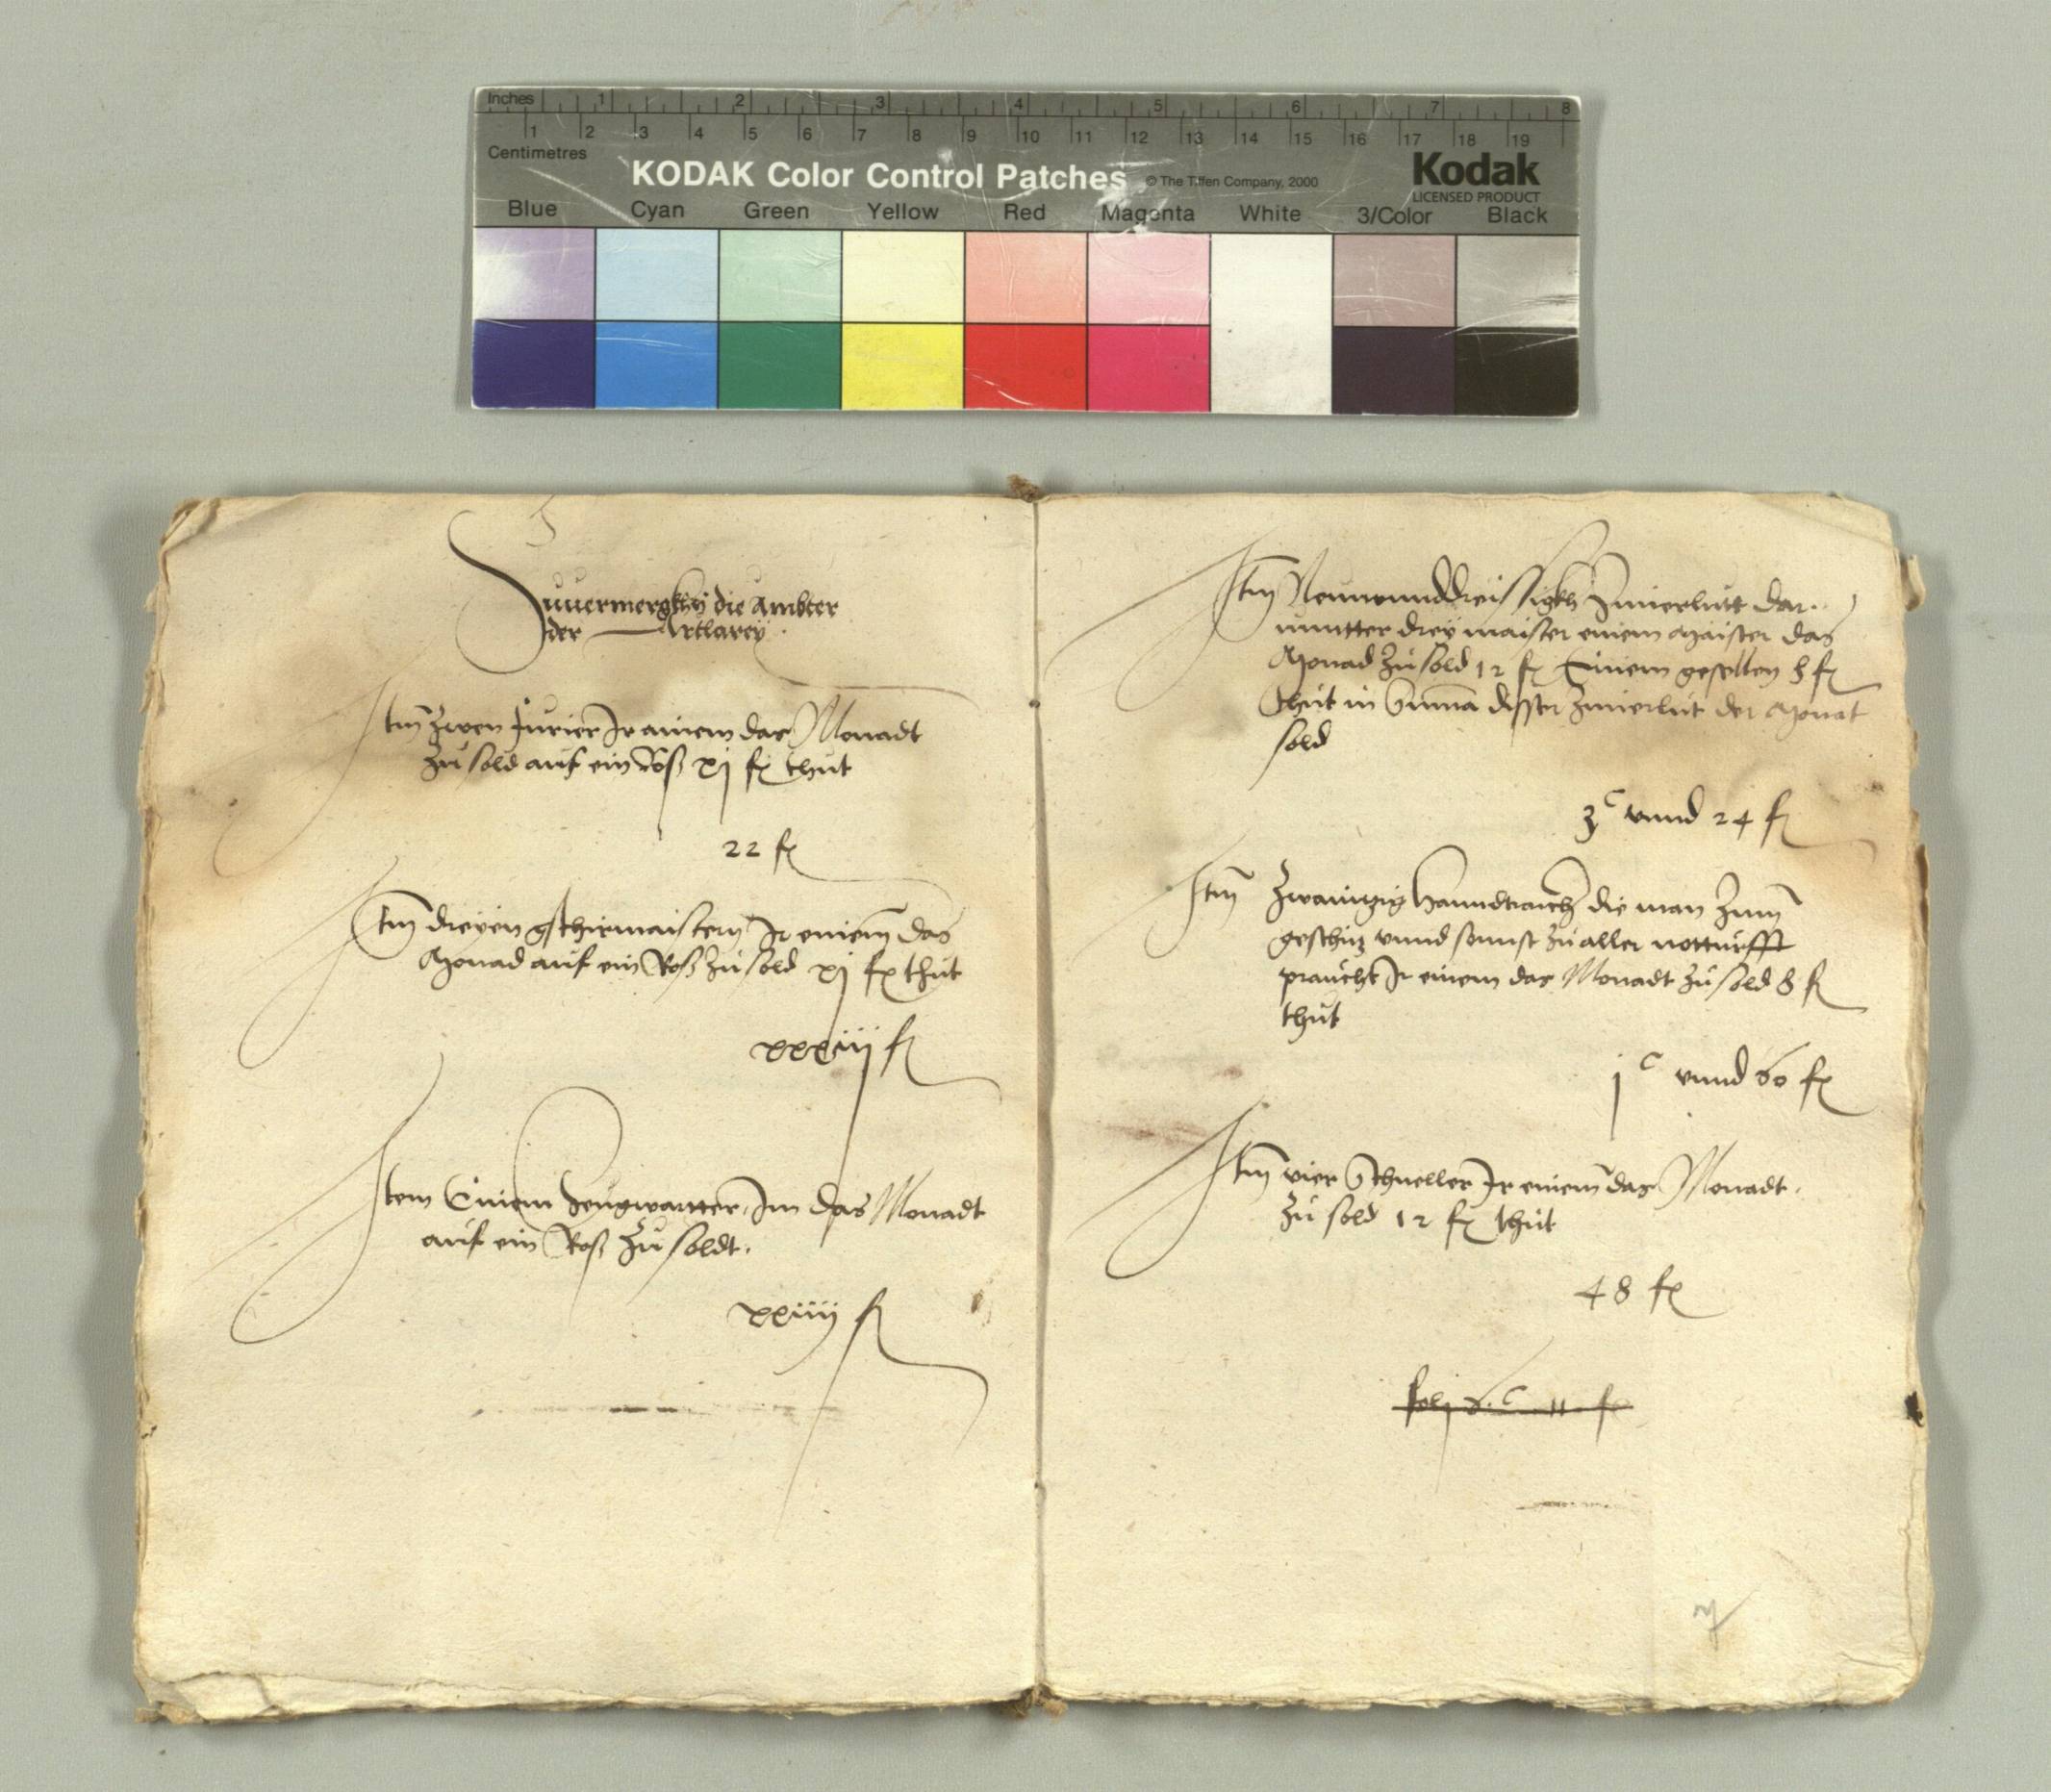 Inches 1 2 3 4 5 6 7 8
1 2 3 4 5 6 7 8 9 10 11 12 13 14 15 16 17 18 19
Centimetres
KODAK Color Control Patches © The Tiffen Company, 2000 Kodak
LICENSED PRODUCT
Blue Cyan Green Yellow Red Magenta White 3/Color Black
Zuuermergkhen die Ambter
der Artlarey
Itm zwen furier Ir ainem das Monadt
zu sold auf ein Roß xj fl thut
22 fl
Itm dreyen gschirmaistern Ir einem das
Monad auf ein Roß zu sold xj fl thut
xxxiij fl
Item Einem Zeugwartter Im das Monadt
auf ein Roß zu soldt.
xxiiij fl
Itm Neunvnnddreissigkh Zimerlutt dar
vnntter drey maister einem Maister das
Monad zu sold 12 fl Einem gesellen 8 fl
thut in Summa disser Zimerlut der Monat
sold
3 c vnnd 24 fl
Itm Zwainzig Hanndtraich die man zum
geschuz vnnd sonnst zu aller notturfft
praucht Ir einem das Monadt zu sold 8 fl
thut
j c vnnd 60 fl
Itm vier Schneller Ir einem das Monadt.
zu sold 12 fl thut
48 fl
6. c 11 fl